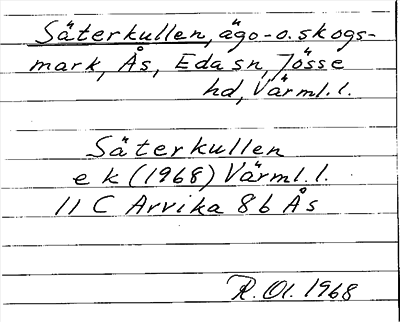 Säterkullen, ägo-o.skogs-
mark, Ås, Eda sn, Jösse
hd, Värml.l.
Säterkullen
e k (1968) Värml.l.
11 C Arvika 8b Ås
R.Ol. 1968